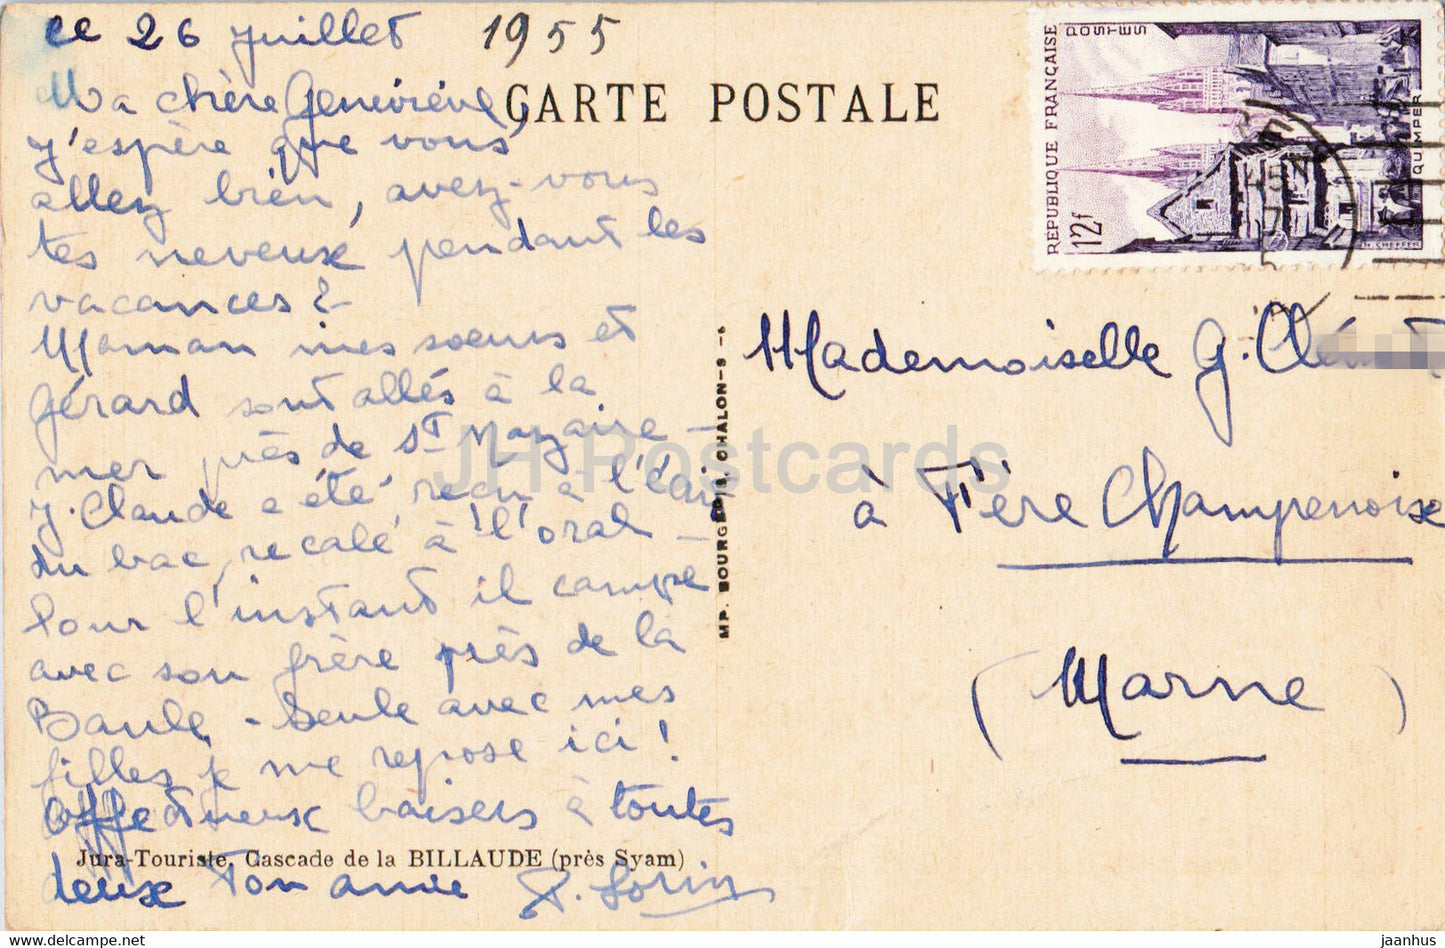 ce 26 juillet 1955
Ma chère Geneviève,
j'espère que vous
allez bien, avez-vous
tes neveux pendant les
vacances ?
Maman mes soeurs et
Gérard sont allés à la
mer près de St Nazaire -
J. Claude a été reçu à l'écrit
du bac, recalé à l'oral -
Pour l'instant il campe
avec son frère près de la
Baule - Seule avec mes
filles je me repose ici !
Affectueux baisers à toutes
deux Ton amie
CARTE POSTALE
RÉPUBLIQUE FRANÇAISE
POSTES
12f
QUIMPER
Mademoiselle G.
à Fère Champenoise
(Marne)
MP. BOURGEOIS, CHALON-S-
Jura-Touriste. Cascade de la BILLAUDE (près Syam)
JH Postcards
www.delcampe.net
jaanhus